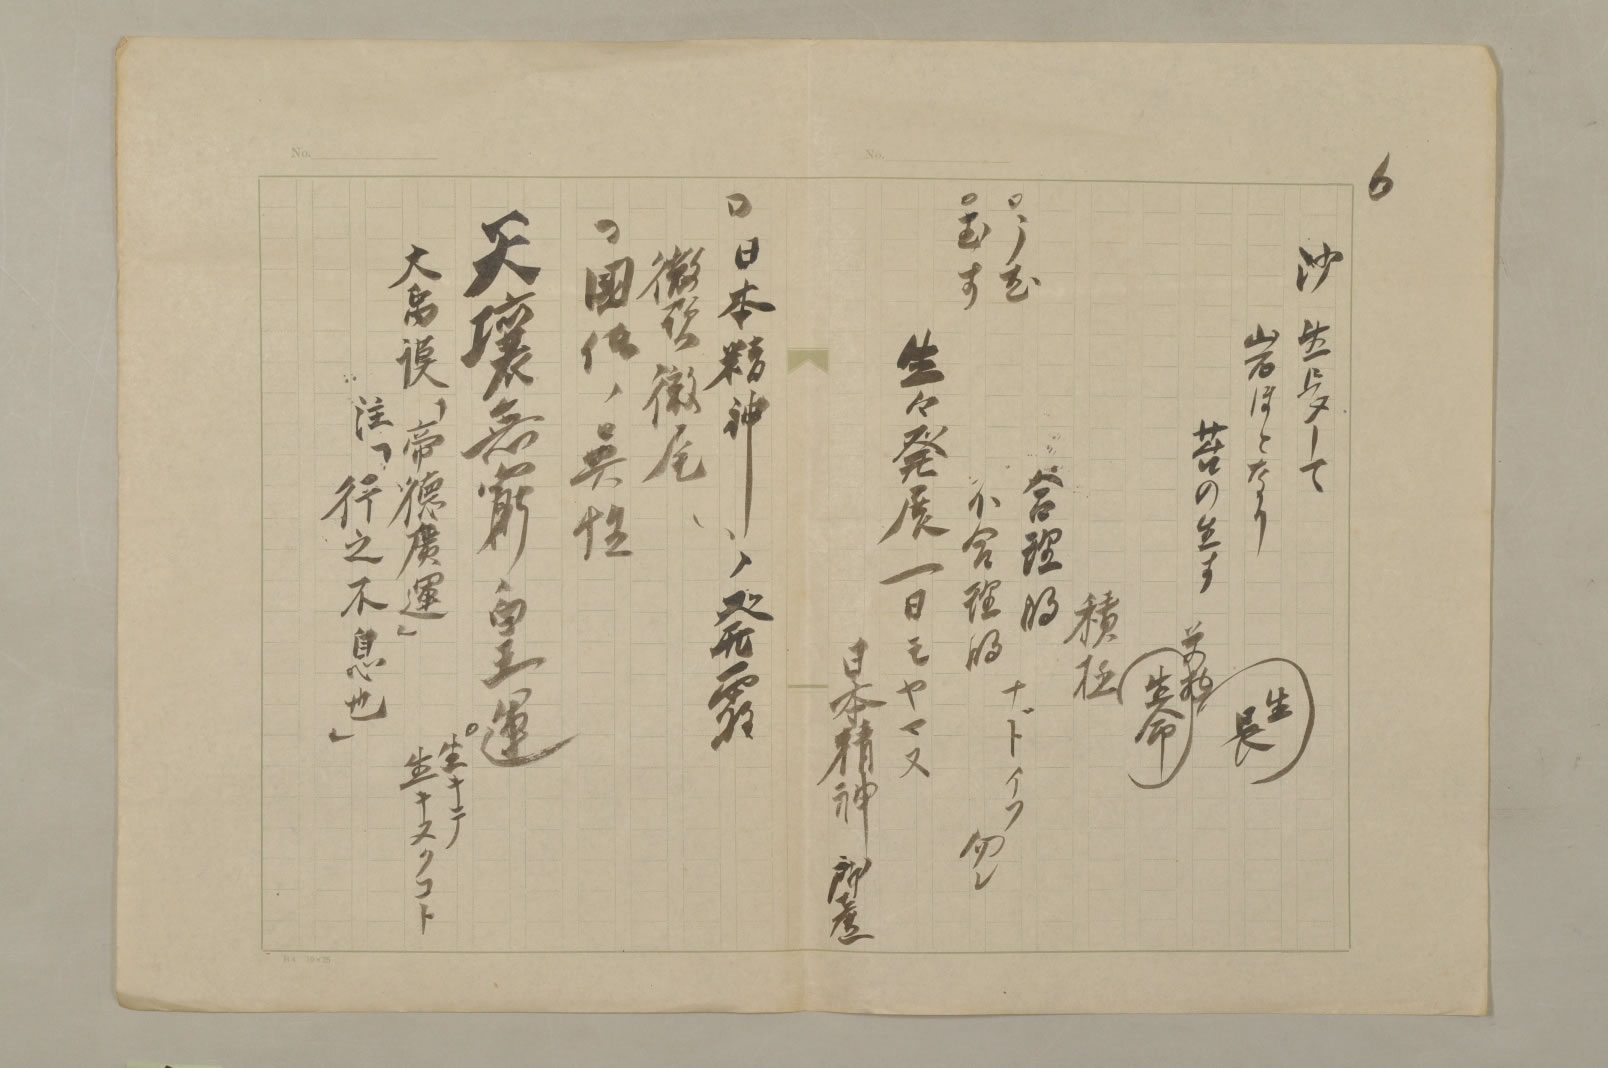 6
沙 生長して
岩ほとなり
苔の生す
生長
生命
積極
合理的
不合理的 ナドイフ勿レ
生々発展 一日モヤマヌ
日本精神
日本精神ノ発露
徹頭徹尾
国体ノ
天壌無窮ノ皇運
生キテ
生キヌクコト
大禹謨「帝徳廣運」
注「行之不息也」
No.
No.